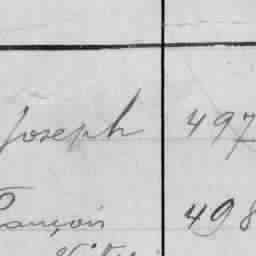 Joseph 497
ançois 498